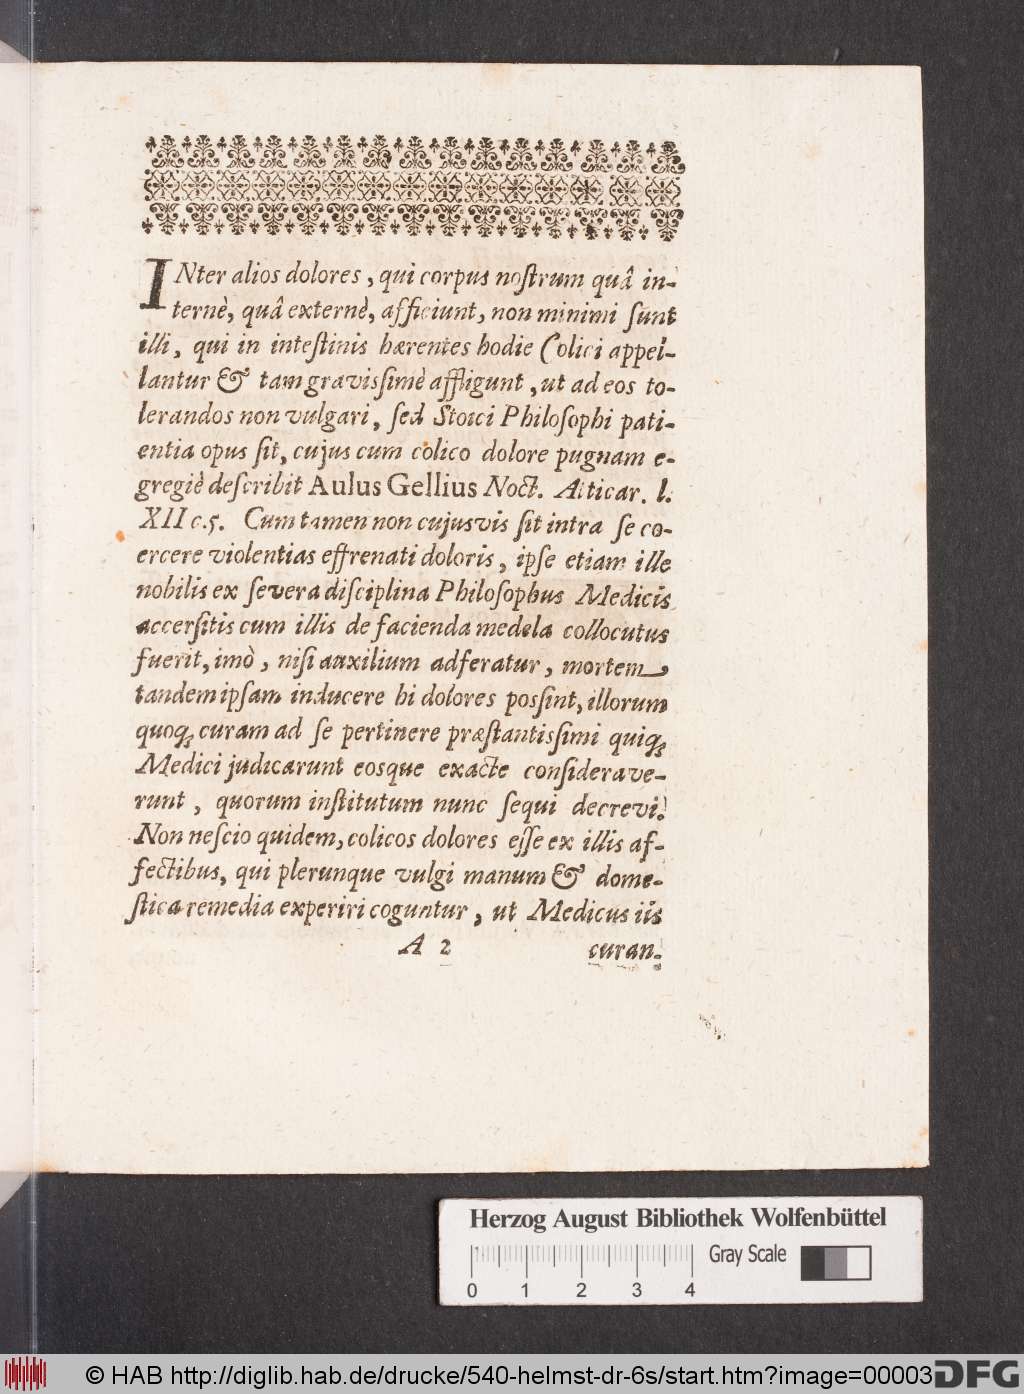 INter alios dolores, qui corpus nostrum quâ in-
ternè, quâ externè, afficiunt, non minimi sunt
illi, qui in intestinis hærentes hodie Colici appel-
lantur & tam gravissimè affligunt, ut ad eos to-
lerandos non vulgari, sed Stoici Philosophi pati-
entia opus sit, cujus cum colico dolore pugnam e-
gregiè describit Aulus Gellius Noct. Atticar. l.
XII c.5. Cum tamen non cujusvis sit intra se co-
ercere violentias effrenati doloris, ipse etiam ille
nobilis ex severa disciplina Philosophus Medicis
accersitis cum illis de facienda medela collocutus
fuerit, imò, nisi auxilium adferatur, mortem
tandem ipsam inducere hi dolores possint, illorum
quoq; curam ad se pertinere præstantissimi quiq;
Medici judicarunt eosque exacte considerave-
runt, quorum institutum nunc sequi decrevi.
Non nescio quidem, colicos dolores esse ex illis af-
fectibus, qui plerunque vulgi manum & dome-
stica remedia experiri coguntur, ut Medicus iis
A 2 curan-
Herzog August Bibliothek Wolfenbüttel
Gray Scale
0 1 2 3 4
© HAB http://diglib.hab.de/drucke/540-helmst-dr-6s/start.htm?image=00003
DFG